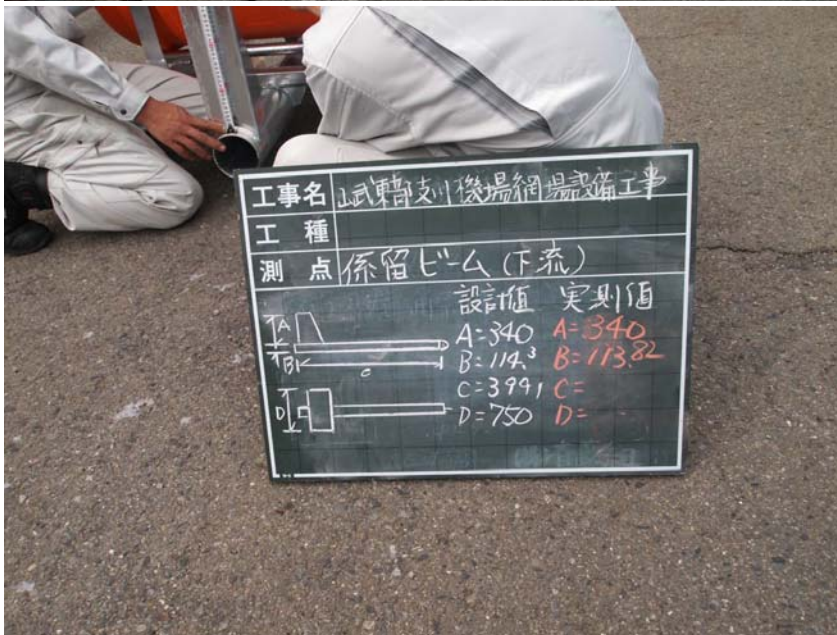 工事名 山武東部支川機場網場設備工事
工種
測点 係留ビーム(下流)
設計値 実測値
A A=340 A=340
B B=114.3 B=113.82
C C=3991 C=
D D=750 D=